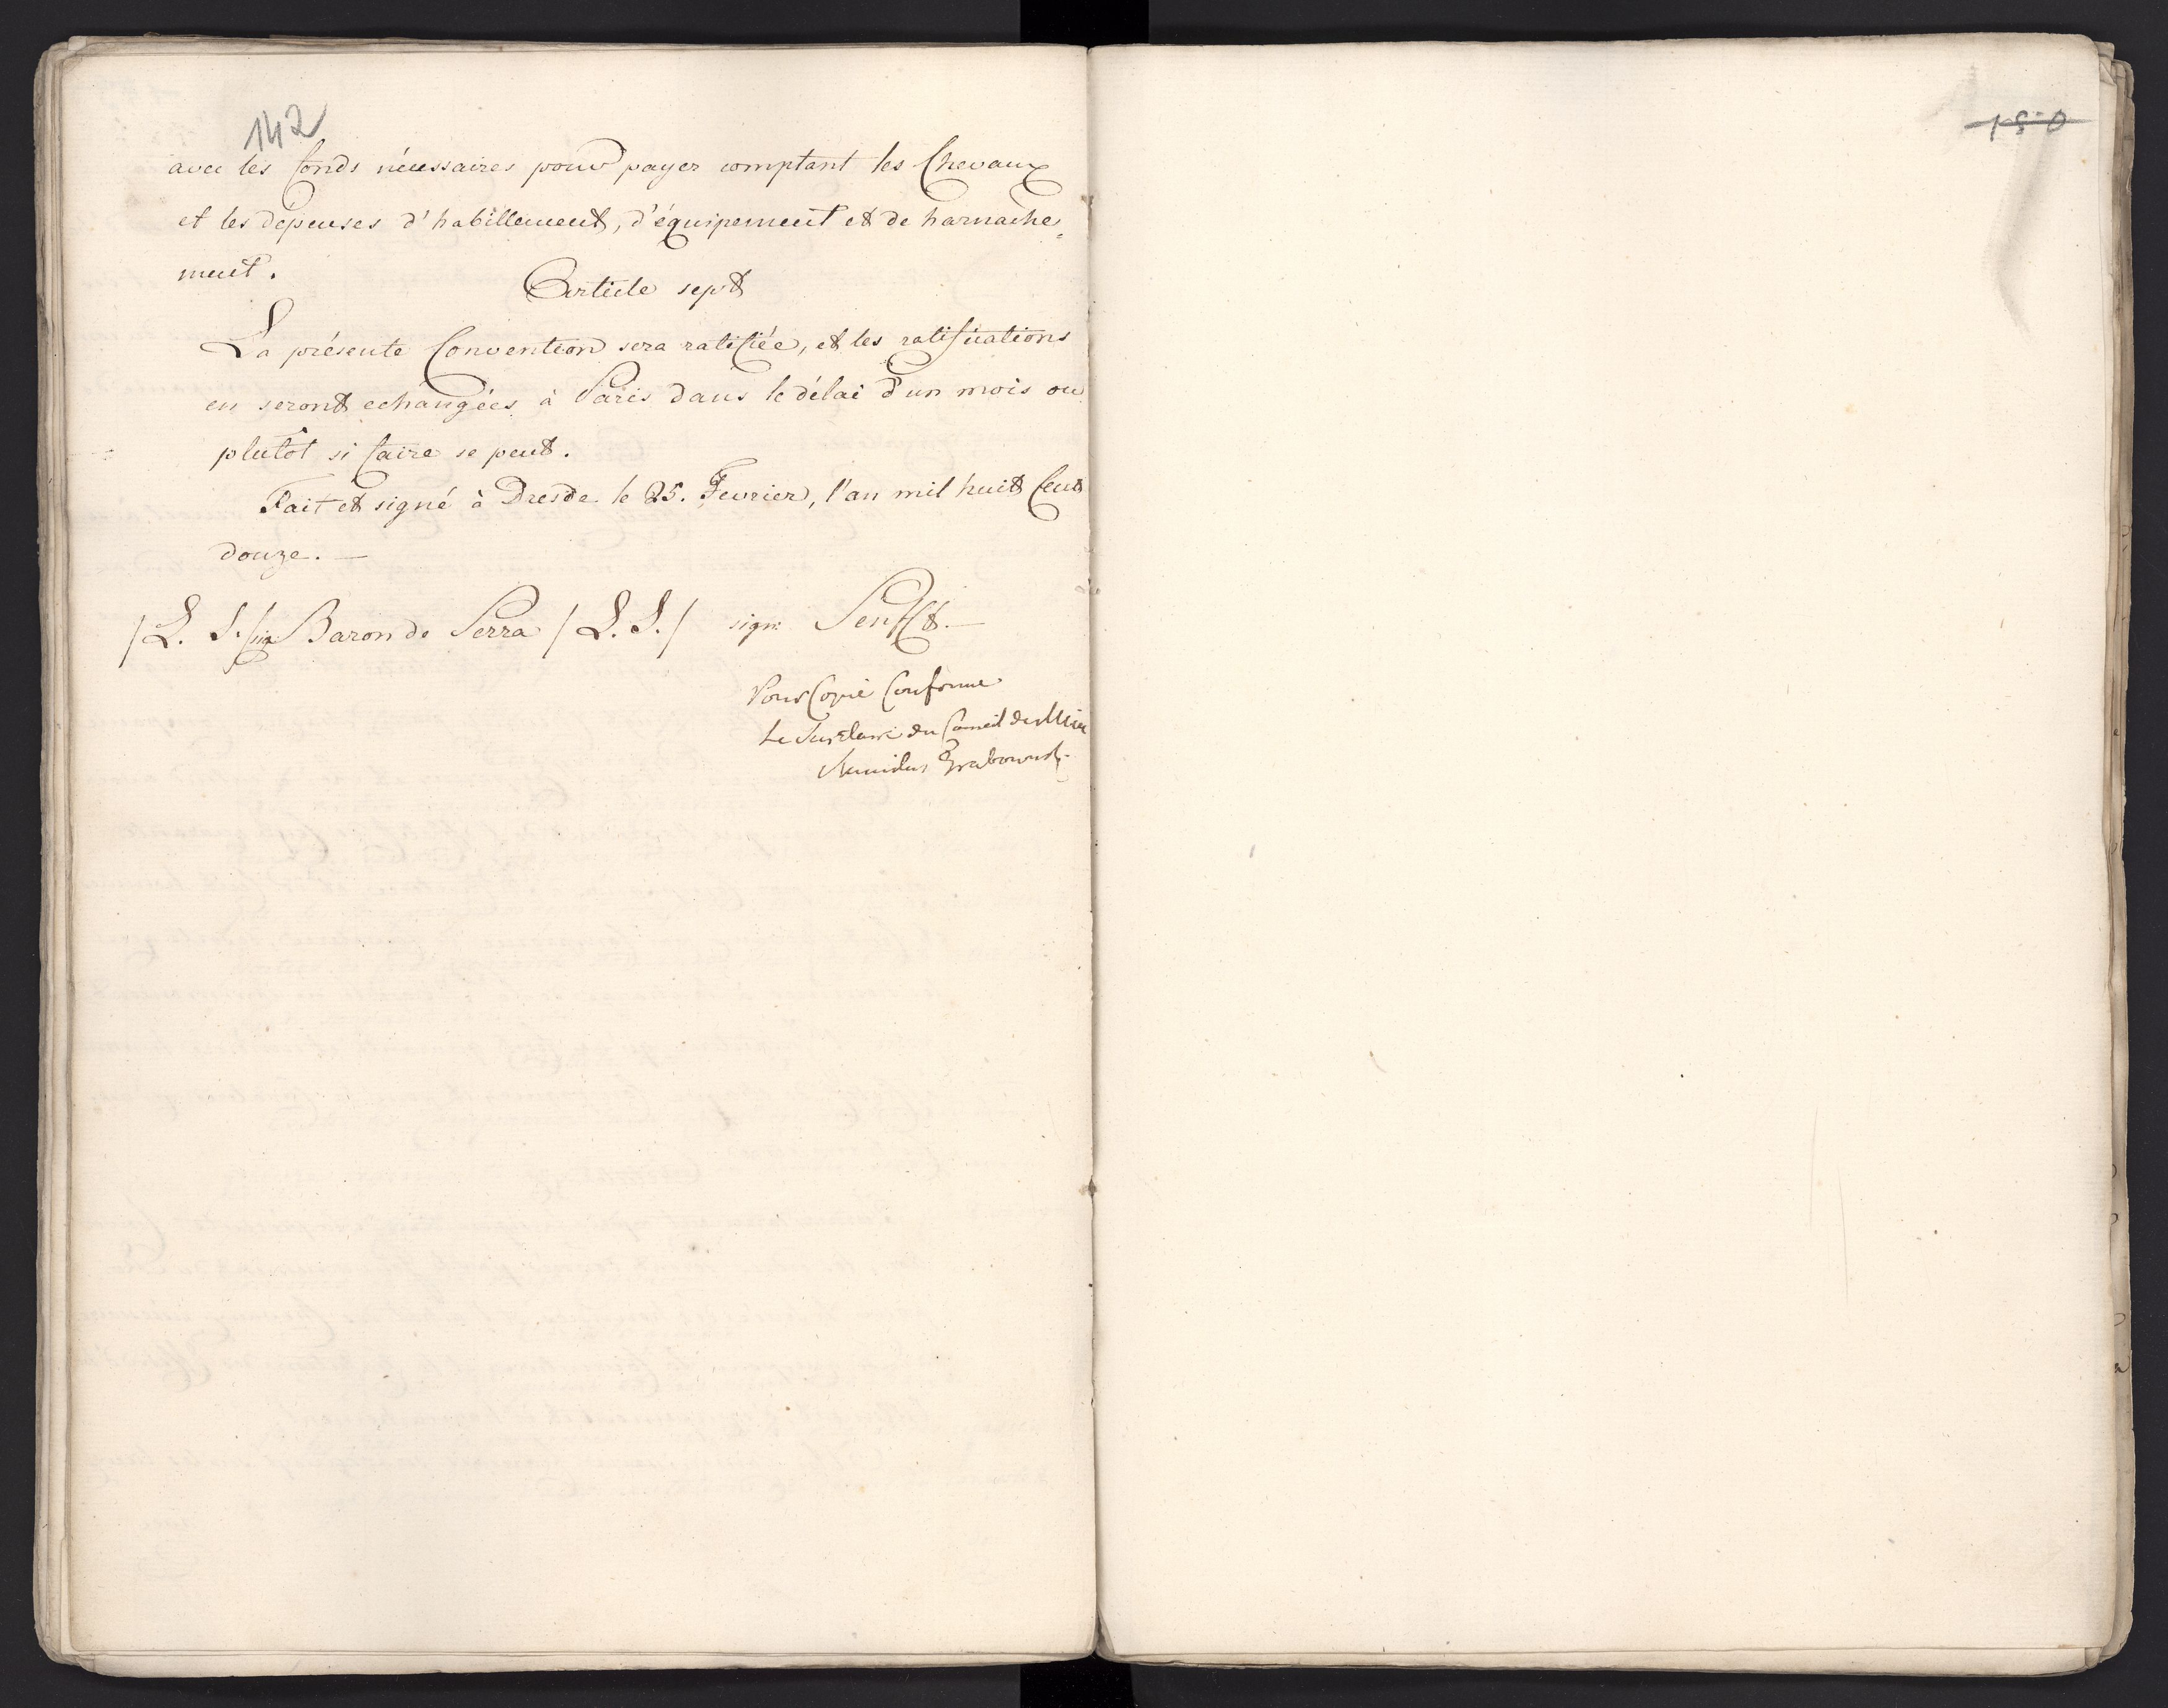 142
avec les fonds nécessaires pour payer comptant les Chevaux
et les depenses d'habillement, d'équipement et de harnache=
ment.
Article sept
La présente Convention sera ratifiée, et les ratifications
en seront echangées à Paris dans le délai d'un mois ou
plutôt si faire se peut.
Fait et signé à Dresde le 25. Fevrier, l'an mil huit Cent
douze. —
/L. S./ sig Baron de Serra /L. S./ sign: Senfft. —
Pour Copie Conforme
Le Secretaire du Conseil des Min
Grabowski
150